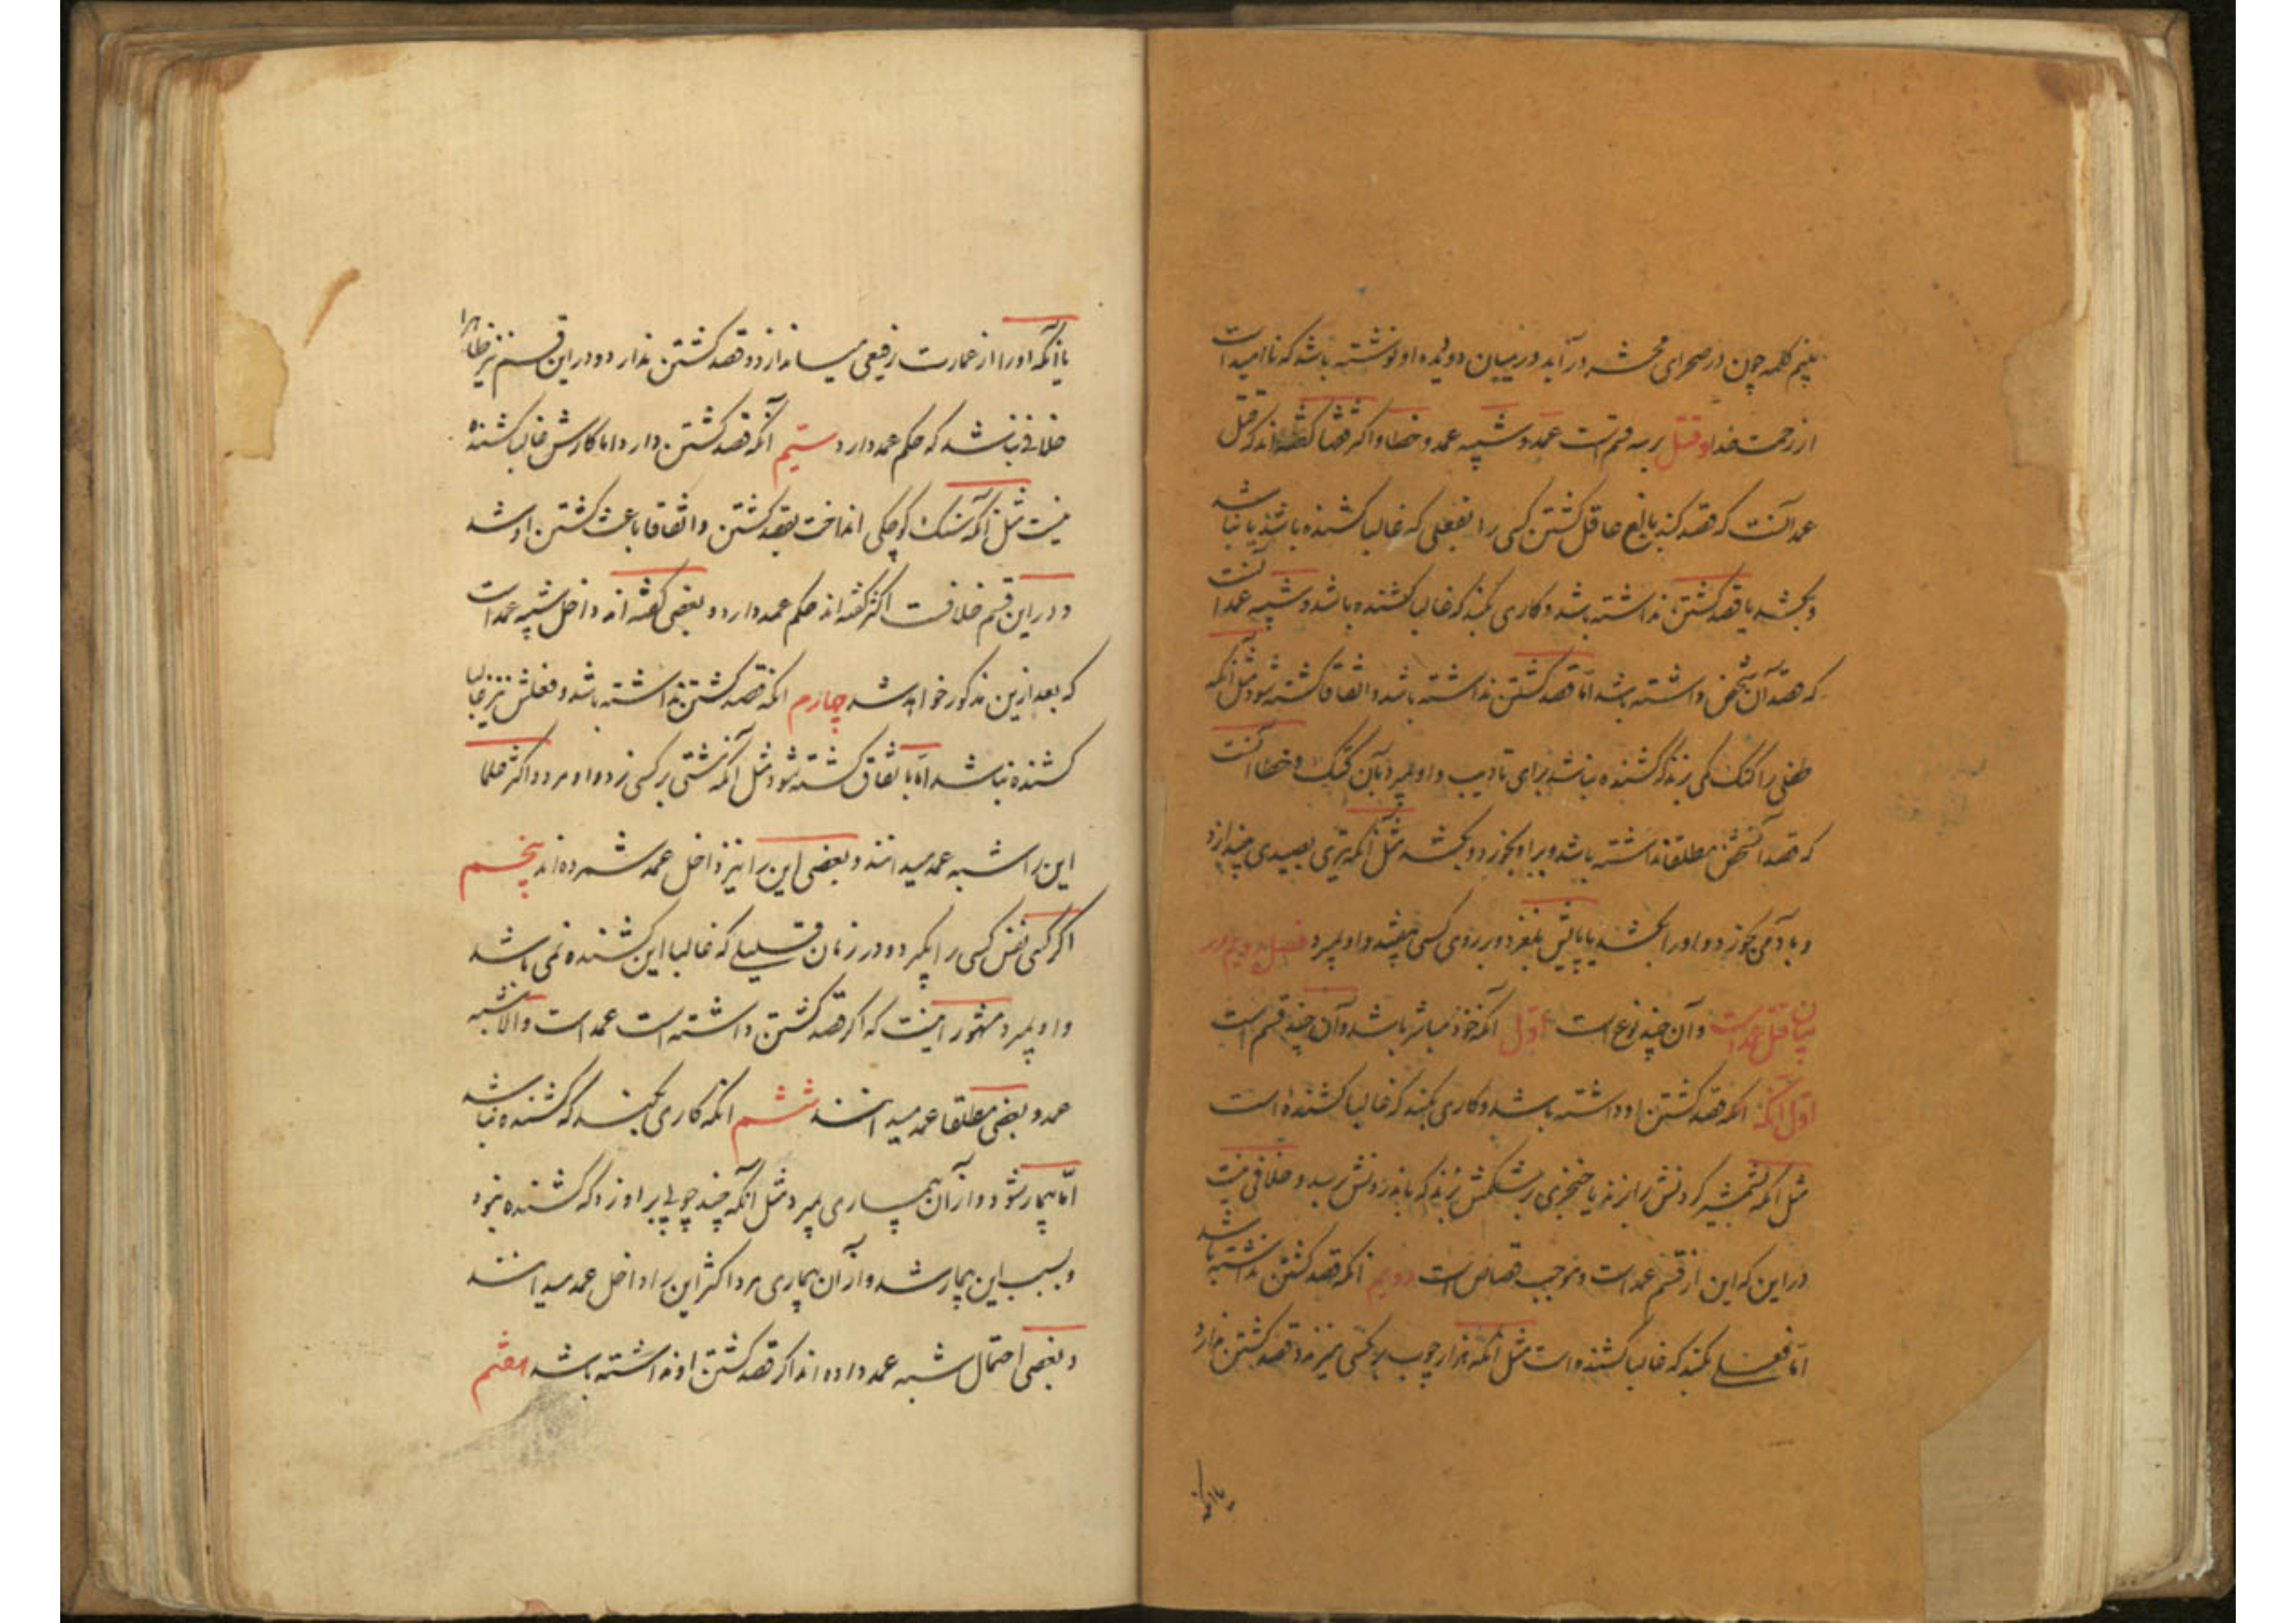 بنیم کلمه چون در صحرای محشر درآید در میان دو دیده او نوشته باشد که ناامید است
از رحمت خدا و قتل بر سه قسم است عمد و شبیه عمد و خطا و اکثر فقها گفته‌اند که قتل
عمد آنست که قصد کند بالغ عاقل کشتن کسی را بفعلی که غالبا کشنده باشد یا نباشد
و بکشد یا قصد کشتن نداشته باشد و کاری بکند که غالبا کشنده باشد و شبیه عمد آنست
که قصد آن شخص داشته باشد اما قصد کشتن نداشته باشد و اتفاقا کشته شود مثل آنکه
طفلی را کتک کمی بزند که کشنده نباشد برای تادیب و او بمیرد بآن کتک و خطا آنست
که قصد آن شخص مطلقا نداشته باشد و بر او بخورد و بکشد مثل آنکه تیری بصیدی بیندازد
و بآدمی بخورد و او را بکشد یا پایش بلغزد و بر روی کسی بیفتد و او بمیرد فصل دویم در
بیان قتل عمد است و آن چند نوع است اول آنکه خود مباشر باشد و آن چند قسم است
اول آنکه آنکه قصد کشتن او داشته باشد و کاری بکند که غالبا کشنده است
مثل آنکه بشمشیر گردنش را بزند یا خنجری بر شکمش بزند که باندرونش برسد و خلافی نیست
در این که این از قسم عمد است و موجب قصاص است دویم آنکه قصد کشتن نداشته باشد
اما فعلی بکند که غالبا کشنده است مثل آنکه هزار چوب بر کسی میزند و قصد کشتن ندارد
یا آنکه
یا آنکه او را از عمارت رفیعی میاندازد و قصد کشتن ندارد و در این قسم نیز ظاهرا
خلافی نباشد که حکم عمد دارد سیم آنکه قصد کشتن دارد اما کارش غالبا کشنده
نیست مثل آنکه سنک کوچکی انداخت بقصد کشتن و اتفاقا باعث کشتن او شد
و در این قسم خلافست اکثر گفته‌اند حکم عمد دارد و بعضی گفته‌اند داخل شبیه عمد است
که بعد ازین مذکور خواهد شد چهارم آنکه قصد کشتن نداشته باشد و فعلش نیز غالبا
کشنده نباشد اما باتفاق کشته شود مثل آنکه مشتی بر کسی زد و او مرد و اکثر علما
این را شبه عمد میدانند و بعضی این را نیز داخل عمد شمرده‌اند پنجم
اگر کسی نفس کسی را بگیرد و در زمان قلیلی که غالبا این کشنده نمی باشد
و او بمیرد مشهور اینست که اگر قصد کشتن داشته است عمد است و الا شبیه
عمد و بعضی مطلقا عمد میدانند ششم آنکه کاری بکند که کشنده نباشد
اما بیمار شود و از آن بیماری بمیرد مثل آنکه چند چوبی بر او زد که کشنده نبود
و بسبب این بیمار شد و از آن بیماری مرد اکثر این را داخل عمد میدانند
و بعضی احتمال شبه عمد داده‌اند اگر قصد کشتن او نداشته باشد هفتم